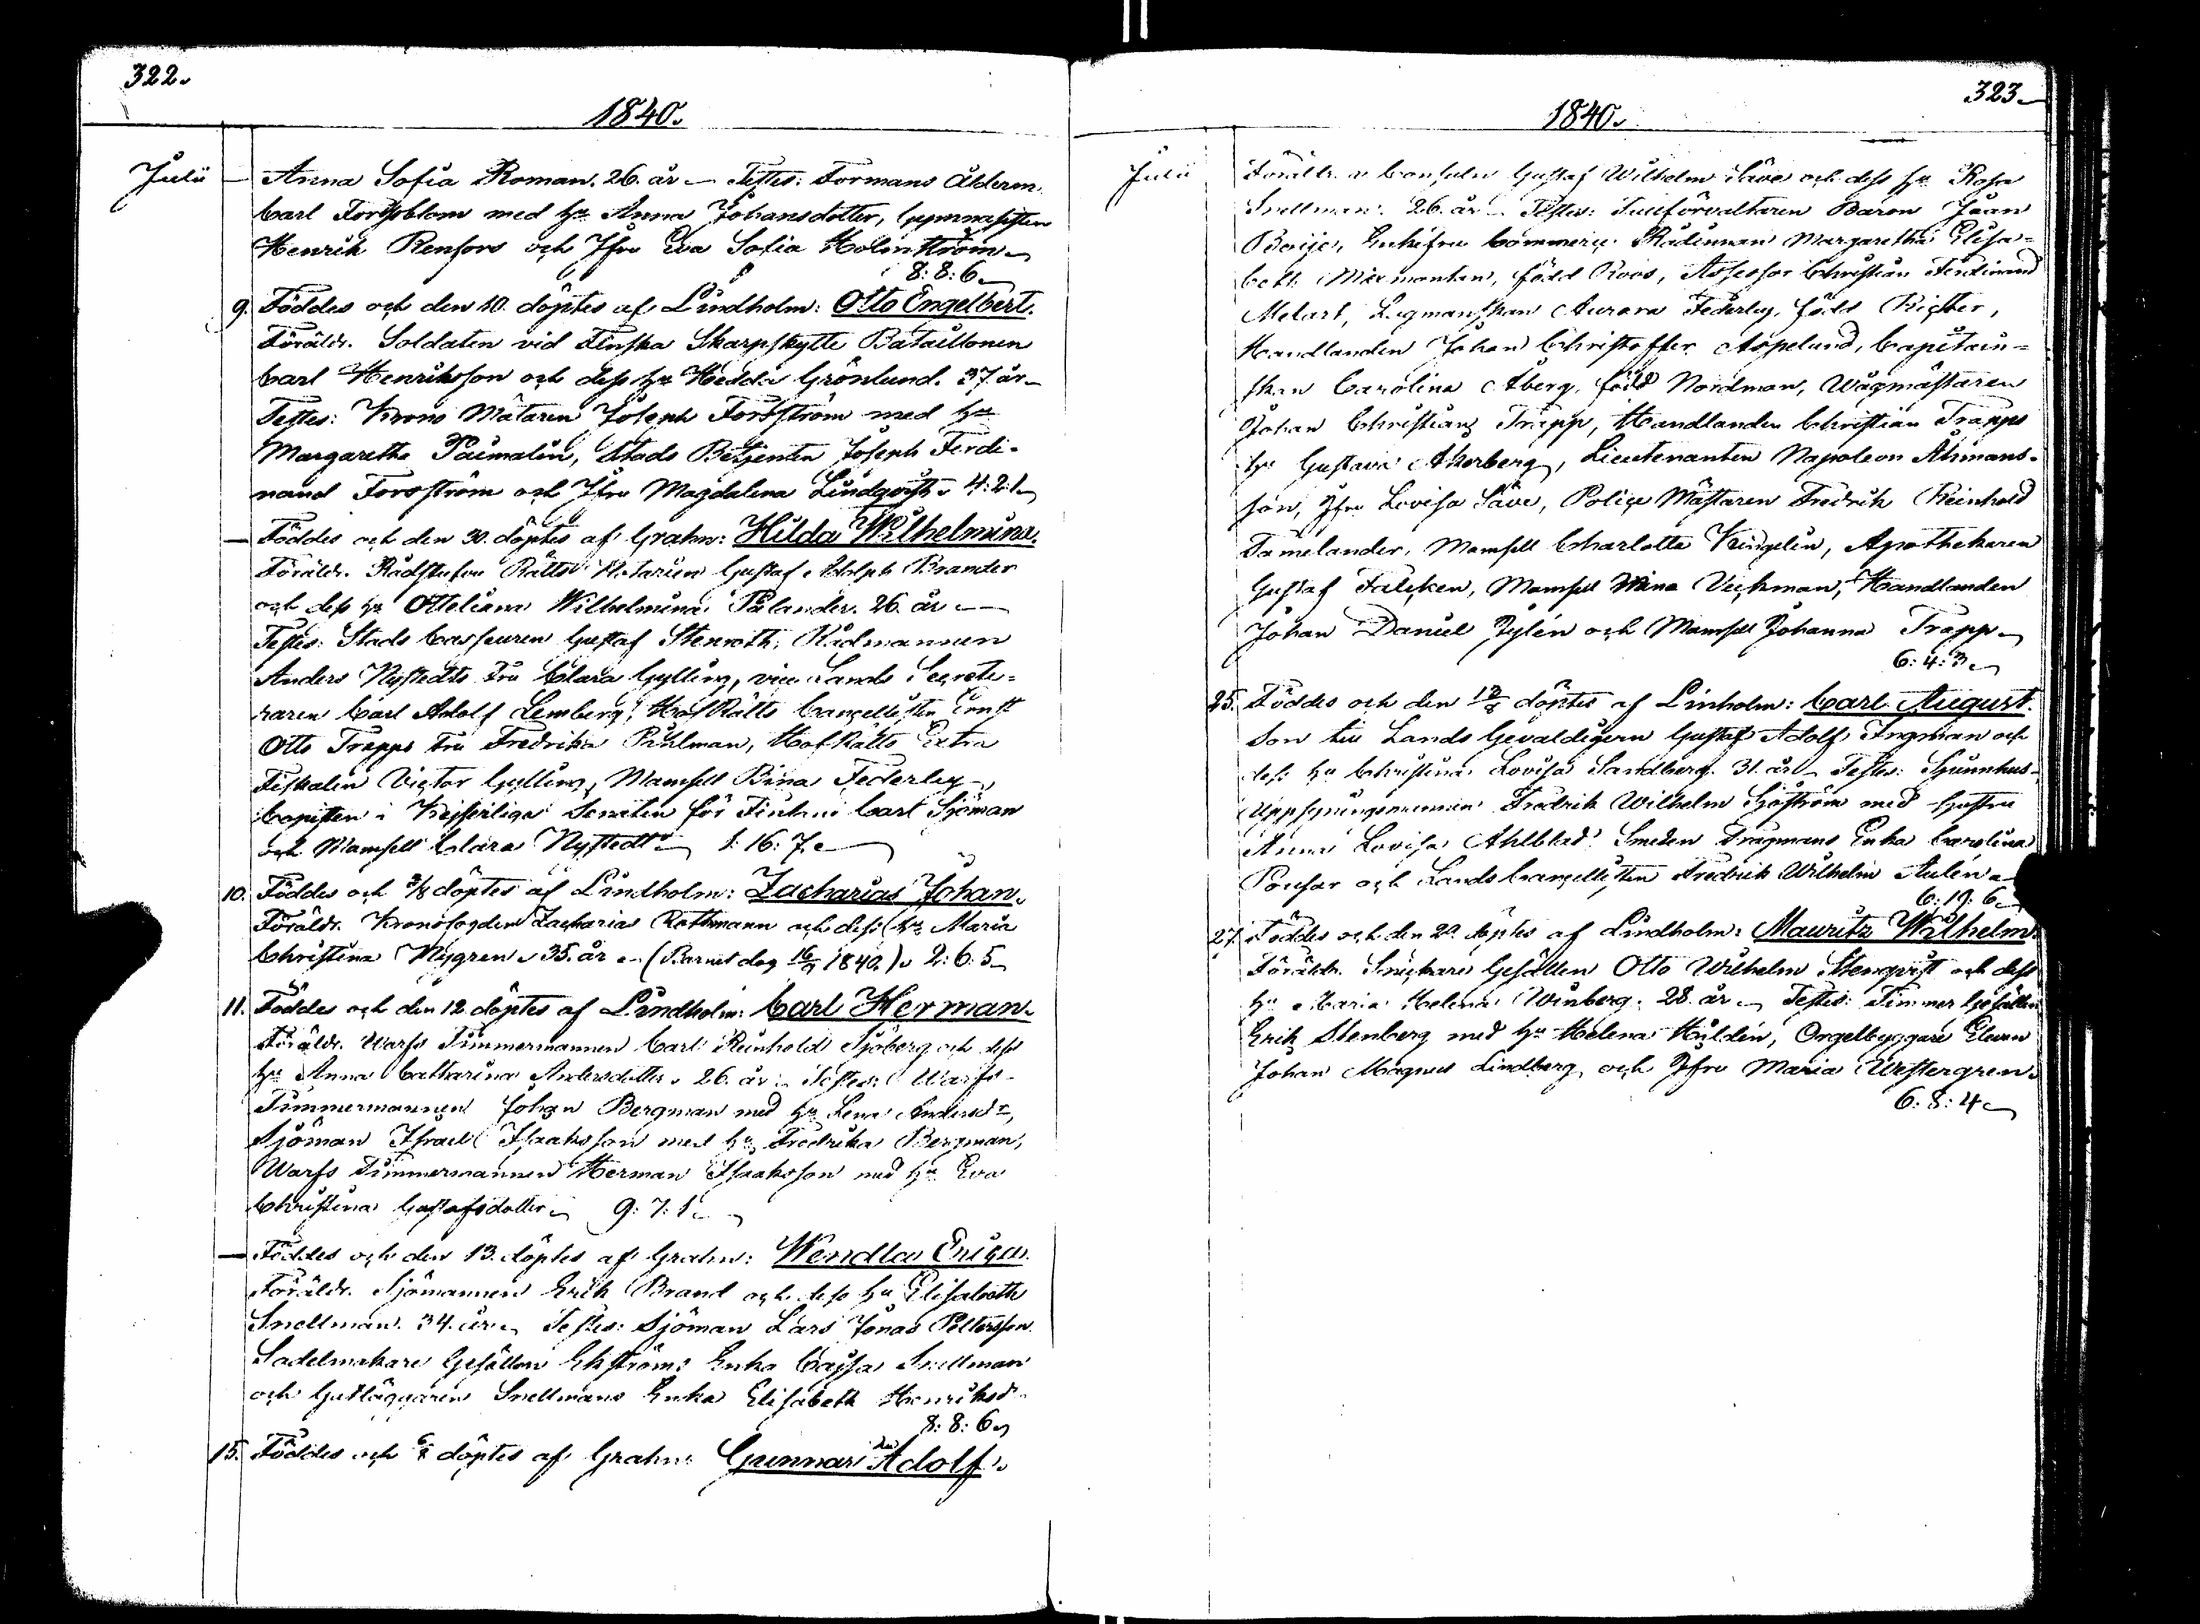 322.
1840.
Julii — Anna Sofia Roman. 26. år — Testes: Formans Ålderm.
Carl Forssblom med hu Anna Johansdotter, Gymnasisten
Henrik Renfors och Jfru Eva Sofia Holmström
8: 8: 6
9. Föddes och den 10. döptes af Lindholm: Otto Engelbert.
Föräldr. Soldaten vid Finska Skarpskytte Bataillonen
Carl Henriksson och dess hu Hedda Grönlund. 37 år
Testes: Krono Mätaren Joseph Forsström med hu
Margaretha Paimalin, Stads Betjenten Joseph Ferdi-
nand Forsström och Jfru Magdalena Lindqvist 4: 2: 1
— Föddes och den 30. döptes af Grahn: Hilda Wilhelmina.
Föräldr. Rådstufvu Rätts Notarien Gustaf Adolph Brander
och dess hu Otteliana Wilhelmina Palander. 26. år
Testes: Stads Casseuren Gustaf Stenroth, Rådmannen
Anders Nystedts Fru Clara Gylling, vice Lands Secrete-
raren Carl Adolf Lemberg, HofRätts Cancellisten Ernst
Otto Trapps Fru Fredrika Pihlman, HofRätts Extra
Fiskalen Victor Gylling, Mamsell Bina Federley,
Copisten i Kejserliga Senaten för Finland Carl Sjöman
och Mamsell Clara Nystedt 1: 16: 7.
10. Föddes och 3/8 döptes af Lindholm: Zacharias Johan.
Föräldr. Kronofogden Zacharias Rothmann och dess hu Maria
Christina Nygren 35. år (Barnet dog 16/9 1840.) 2: 6: 5
11. Föddes och den 12 döptes af Lindholm: Carl Herman.
Föräldr. Warfs Timmermannen Carl Reinhold Sjöberg och dess
hu Anna Catharina Andersdotter 26. år Testes: Warfs
Timmermannen Johan Bergman med hu Lena Andersdr,
Sjöman Israel Isaksson med hu Fredrika Bergman,
Warfs Timmermannen Herman Isaksson med hu Eva
Christina Gustafsdotter 9: 7: 1
— Föddes och den 13. döptes af Grahn: Wendla Erica.
Föräldr. Sjömannen Erik Brand och dess hu Elisabeth
Snellman. 34. år Testes: Sjöman Lars Jonas Pettersson
Sadelmakare Gesällen Ekströms Enka Cajsa Snellman
och Snellmans Enka Elisabeth Henriksdr
8: 8: 6
15. Föddes och 6/8 döptes af Grahn: Gunnar Adolf.
323
1840.
Julii Föräldr. Consuln Gustaf Wilhelm Säve och dess hu Rosa
Snellman. 26. år Testes: Tullförvaltaren Baron Jean
Boije, Enkefru Commerce Rådinnan Margaretha Elisa-
beth född Roos, Assessor Christian Ferdinand
Metart, Lagmanskan Aurora Federley, född Richter,
Handlanden Johan Christoffer Aspelund, Capitain-
skan Carolina Åberg, född Nordman, Wågmästaren
Johan Christian Trapp, Handlanden Christian Trapps
hu Gustava Åkerberg, Lieutenanten Napoleon Åhmans-
son, Jfru Lovisa Säve, Police Mästaren Fredrik Reinhold
Tamelander, Mamsell Charlotta Kingelin, Apothekaren
Gustaf Fabricius, Mamsell Mina Veckman, Handlanden
Johan Daniel Jylén och Mamsell Johanna Trapp
6: 4: 3
25. Föddes och den 12/8 döptes af Linholm: Carl August.
Son till Lands Gevaldigern Gustaf Adolf Ingman och
dess hu Christina Lovisa Sandberg. 31. år Testes: Spinnhus
Uppsyningsmannen Fredrik Wilhelm Sjöström med Hustru
Anna Lovisa Ahlblad, Smeden Dragmans Enka Carolina
och Lands Cancellisten Fredrik Wilhelm Aulén
6: 19: 6
27. Föddes och den 29. döptes af Lindholm: Mauritz Wilhelm.
Föräldr. Snickare Gesällen Otto Wilhelm Stenqvist och dess
hu Maria Helena Winberg. 28. år Testes: Timmer Gesällen
Erik Stenberg med hu Helena Huldén, Orgelbyggare Eleven
Johan Magnus Lindberg och Jfru Maria Westergren.
6: 8: 4